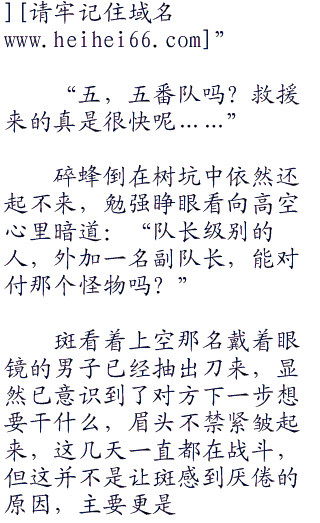 ][请牢记住域名
www.heihei66.com]”
“五，五番队吗？救援
来的真是很快呢……”
碎蜂倒在树坑中依然还
起不来，勉强睁眼看向高空
心里暗道：“队长级别的
人，外加一名副队长，能对
付那个怪物吗？”
斑看着上空那名戴着眼
镜的男子已经抽出刀来，显
然已意识到了对方下一步想
要干什么，眉头不禁紧皱起
来，这几天一直都在战斗，
但这并不是让斑感到厌倦的
原因，主要更是